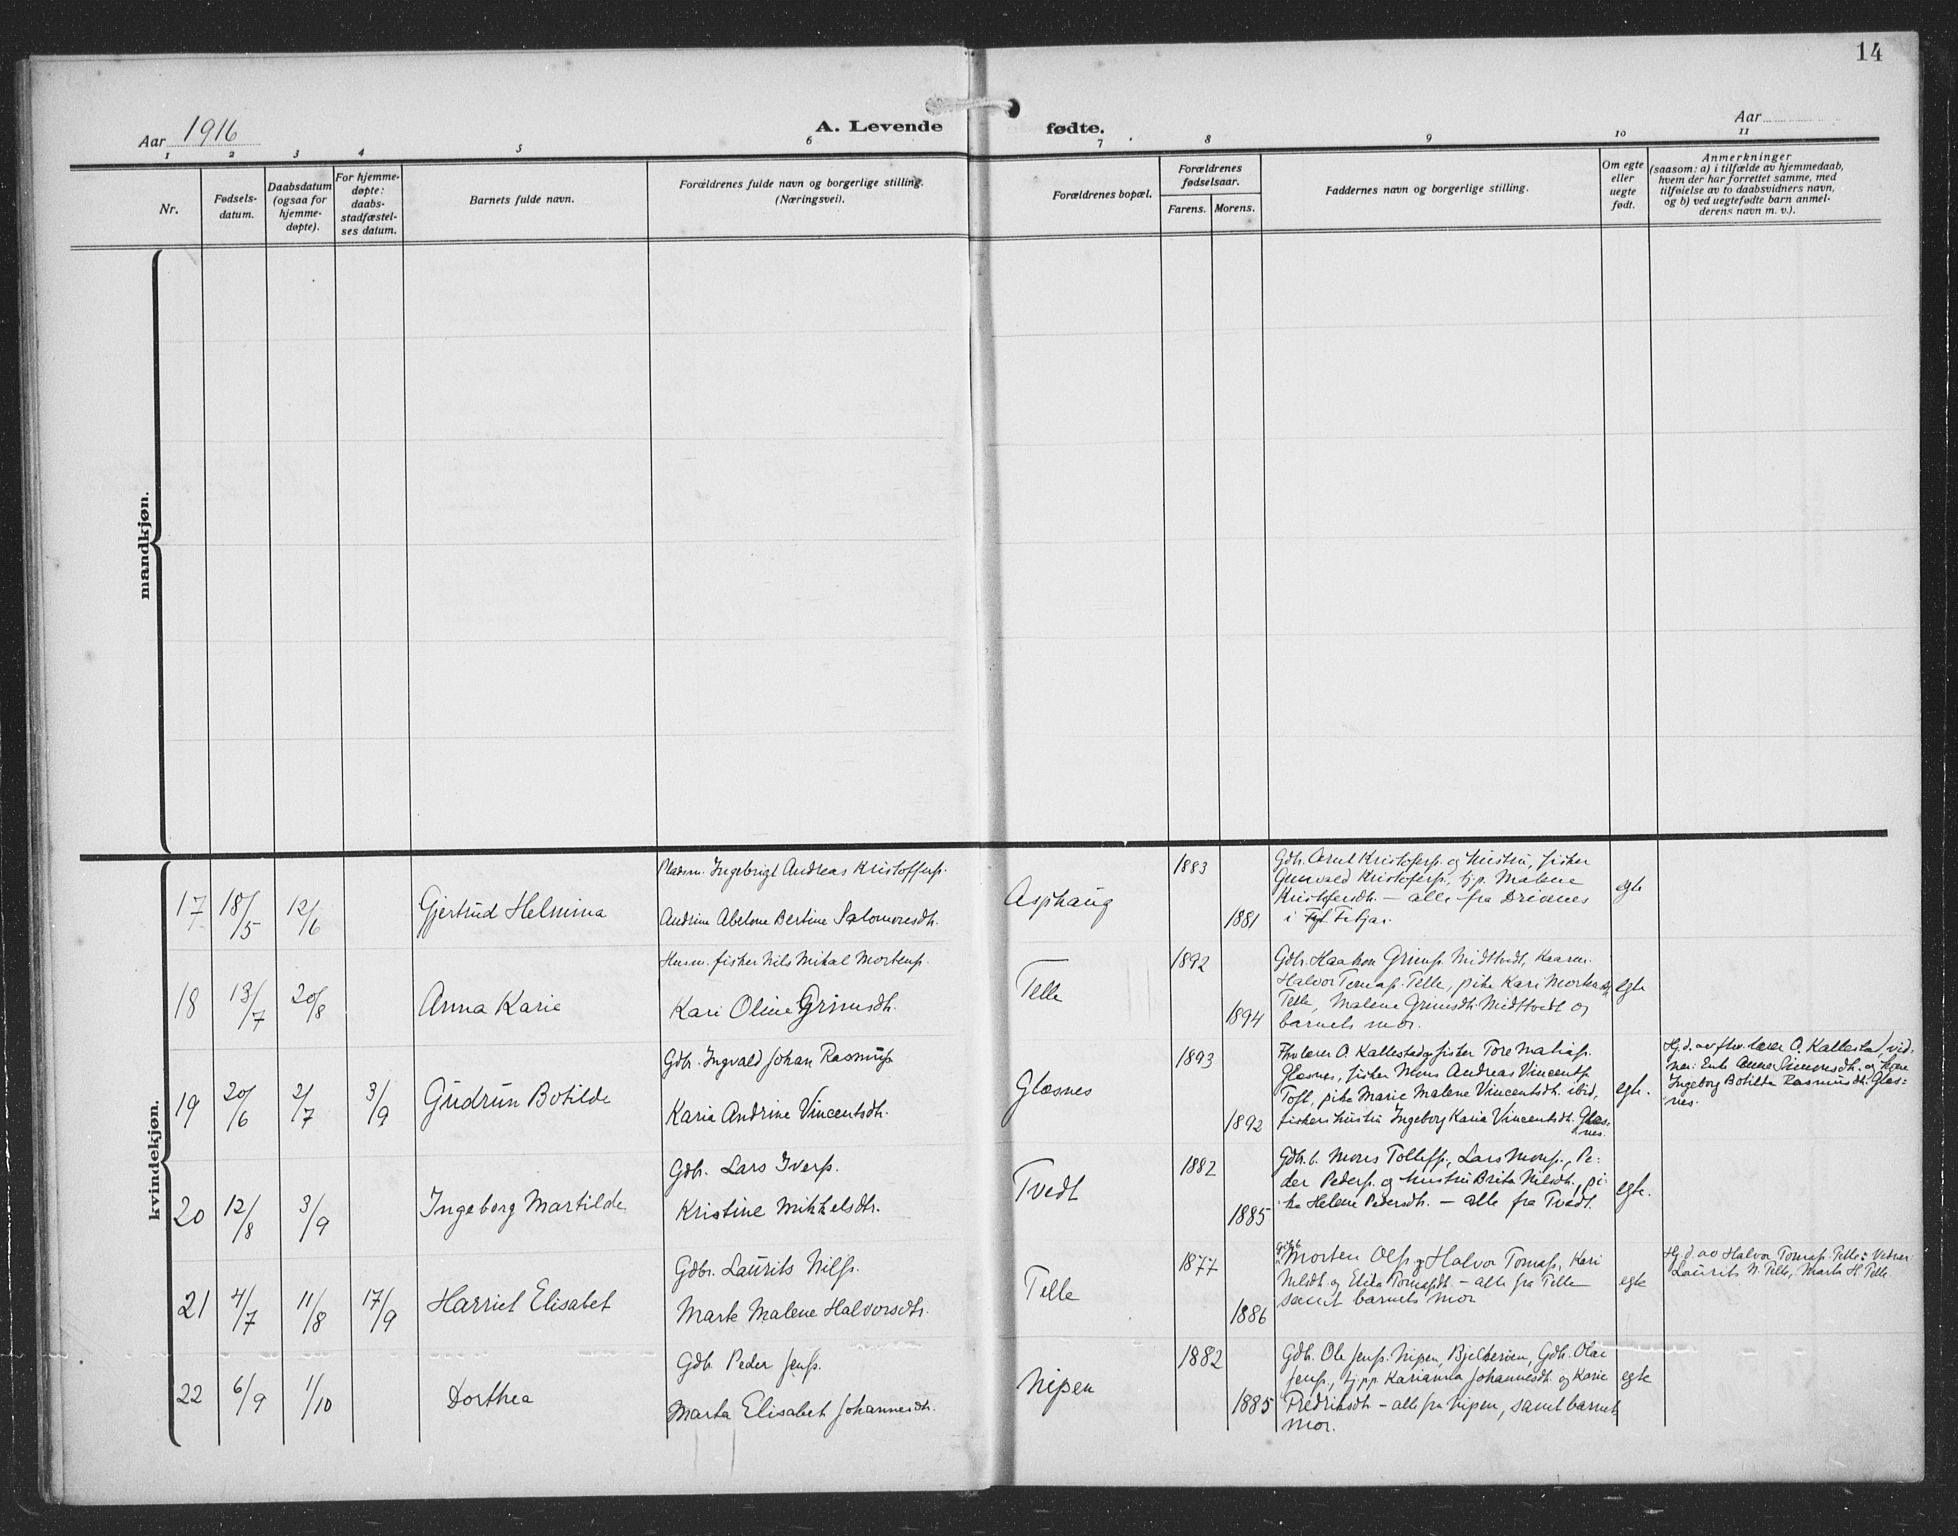 14
Aar 1916
A. Levende
fødte.
Aar
1 2 3 4 5 6 7 8 9 10 11
Nr.
Fødsels-
datum.
Daabsdatum
(ogsaa for
hjemme-
døpte).
For hjemme-
døpte:
daabs-
stadfæstel-
ses datum.
Barnets fulde navn.
Forældrenes fulde navn og borgerlige stilling.
(Næringsvei).
Forældrenes bopæl.
Forældrenes
fødselsaar.
Farens. Morens.
Faddernes navn og borgerlige stilling.
Om egte
eller
uegte
født.
Anmerkninger
(saasom: a) i tilfælde av hjemmedaab,
hvem der har forrettet samme, med
tilføielse av to daabsvidners navn,
og b) ved uegtefødte barn anmel-
derens navn m. v.).
mandkjøn.
kvindekjøn.
17 18/5 12/6
Gjertrud Helmina
Pladsm. Ingebrigt Andreas Kristoffersn.
Andrine Abelone Bertine Salomonsdtr.
Asphaug
1883
1881
Gdbr. Arnt Kristofersn. og hustru, fisker
Gunvald Kristofersn., tj.p. Malene
Kristofersdtr. – alle fra Drionæs
i Fitjar.
egte
18 13/7 20/8
Anna Karie
Husm. fisker Nils Mikal Mortensn.
Kari Oline Grimsdtr.
Telle
1892
1894
Gdbr. Haakon Grimsn. Midttvedt, Kaarem.
Halvor Tomasn. Telle, pike Kari Mortensdtr.
Telle, Malene Grimsdtr. Midttvedt og
barnets mor.
egte
19 20/6 2/7 3/9
Gudrun Botilde
Gdbr. Ingvald Johan Rasmusn.
Karia Andrine Vincentsdtr.
Glæsnes
1893
1892
Fhv. lærer O. Kallestad og fisker Tore Matiasn.
Glæsnes, fisker Mons Andreas Vincentsn.
Toft, pike Marie Malene Vincentsdtr. ibid,
fiskers hustru Ingeborg Karia Vincentsdtr. Glæs-
nes.
egte.
Hj.d. av fhv. lærer O. Kallestad, vid-
ner: Enke Anna Simonsdtr. og Kone
Ingeborg Botilda Rasmusdtr. Glæs-
nes.
20 12/8 3/9
Ingeborg Martilde
Gdbr. Lars Iversn.
Kristine Mikkelsdtr.
Tvedt
1882
1885
Gdbr.b. Mons Tollefsn., Lars Monsn., Pe-
der Pedersn. og hustru Brita Nilsdtr., pi-
ke Helene Pedersdtr. – alle fra Tvedt.
egte.
21 4/7 11/8 17/9
Harriet Elisabet
Gdbr. Laurits Nilsn.
Marte Malene Halvorsdtr.
Telle
1877
1886
Gdbr. Morten Olsn. og Halvor Tomasn., Kari
Nilsdtr. og Elida Tomasdtr. – alle fra Telle
samt barnets mor
egte
Hj.d. av Halvor Tomasn. Telle: Vidner:
Laurits N. Telle, Marta H. Telle
22 6/9 1/10
Dorthea
Gdbr. Peder Jensn.
Marta Elisabet Johannesdtr.
Nipen
1882
1885
Gdbr. Ole Jensn. Nipen, Bjelkerøen, Gdbr. Olai
Jensn., tj.pp. Karianna Johannesdtr. og Karie
Fredriksdtr. – alle fra Nipen, samt barnets
mor.
egte